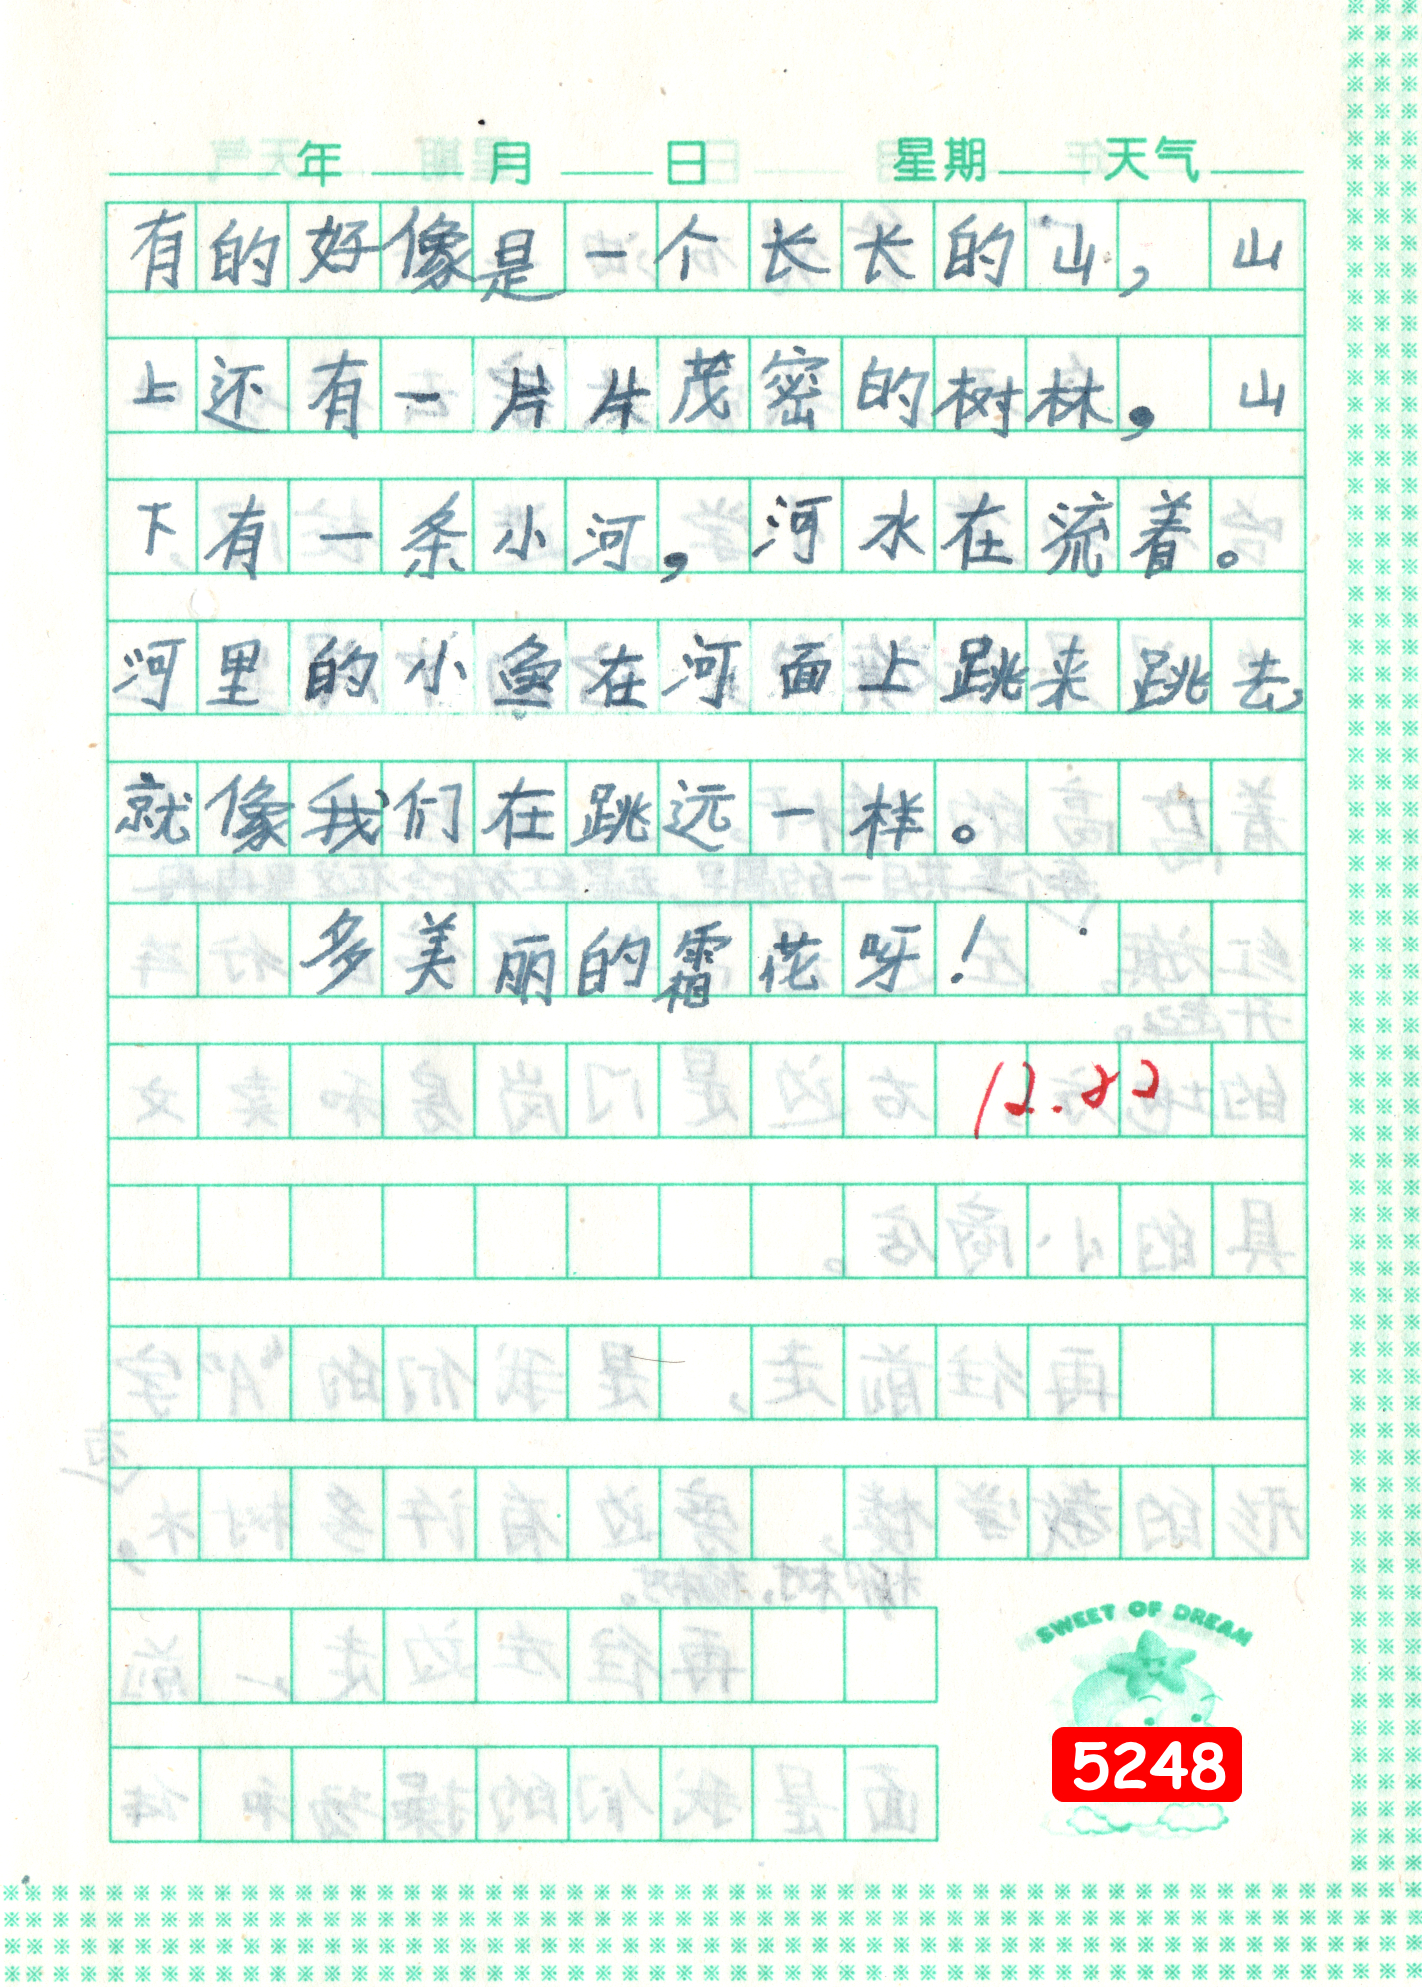 年 月 日 星期 天气
有的好像是一个长长的山，山
上还有一片片茂密的树林，山
下有一条小河，河水在流着。
河里的小鱼在河面上跳来跳去，
就像我们在跳远一样。
多美丽的霜花呀！
12.22
SWEET OF DREAM
5248